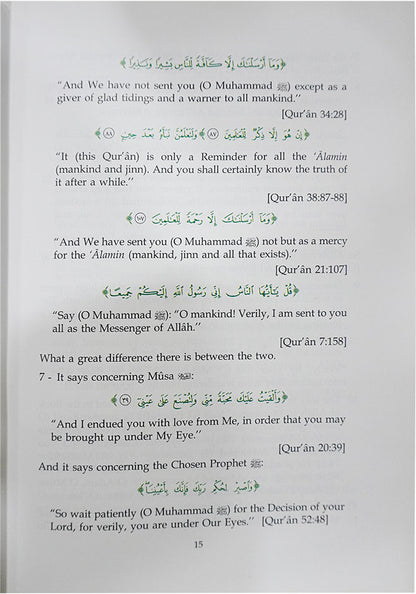 ﴿وَمَا أَرْسَلْنَاكَ إِلَّا كَافَّةً لِلنَّاسِ بَشِيرًا وَنَذِيرًا﴾
“And We have not sent you (O Muhammad ﷺ) except as a
giver of glad tidings and a warner to all mankind.”
[Qur’ân 34:28]
﴿إِنْ هُوَ إِلَّا ذِكْرٌ لِلْعَالَمِينَ ٨٧ وَلَتَعْلَمُنَّ نَبَأَهُ بَعْدَ حِينٍ ٨٨﴾
“It (this Qur’ân) is only a Reminder for all the ‘Âlamin
(mankind and jinn). And you shall certainly know the truth of
it after a while.”
[Qur’ân 38:87-88]
﴿وَمَا أَرْسَلْنَاكَ إِلَّا رَحْمَةً لِلْعَالَمِينَ ١٠٧﴾
“And We have sent you (O Muhammad ﷺ) not but as a mercy
for the ‘Âlamin (mankind, jinn and all that exists).”
[Qur’ân 21:107]
﴿قُلْ يَا أَيُّهَا النَّاسُ إِنِّي رَسُولُ اللَّهِ إِلَيْكُمْ جَمِيعًا﴾
“Say (O Muhammad ﷺ): “O mankind! Verily, I am sent to you
all as the Messenger of Allâh.”
[Qur’ân 7:158]
What a great difference there is between the two.
7 - It says concerning Mûsa :
﴿وَأَلْقَيْتُ عَلَيْكَ مَحَبَّةً مِنِّي وَلِتُصْنَعَ عَلَى عَيْنِي ٣٩﴾
“And I endued you with love from Me, in order that you may
be brought up under My Eye.”
[Qur’ân 20:39]
And it says concerning the Chosen Prophet ﷺ:
﴿وَاصْبِرْ لِحُكْمِ رَبِّكَ فَإِنَّكَ بِأَعْيُنِنَا﴾
“So wait patiently (O Muhammad ﷺ) for the Decision of your
Lord, for verily, you are under Our Eyes.” [Qur’ân 52:48]
15